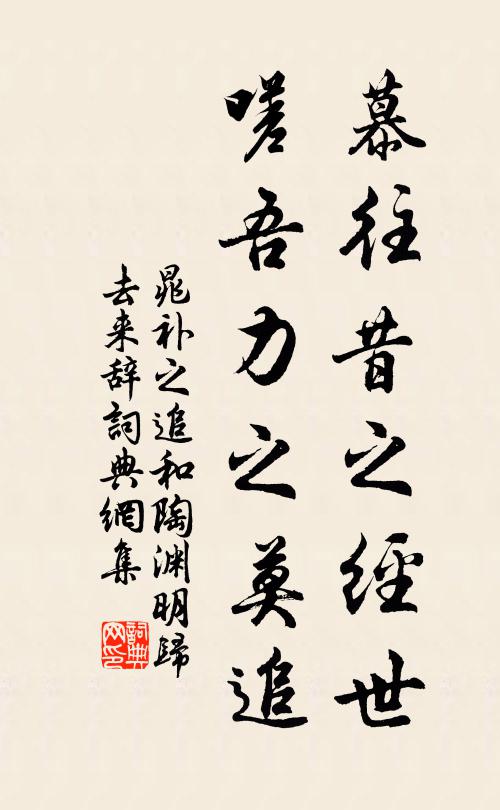 慕往昔之經世
嗟吾力之莫追
晁补之追和陶渊明歸
去来辞詞典網集
詞典
网印